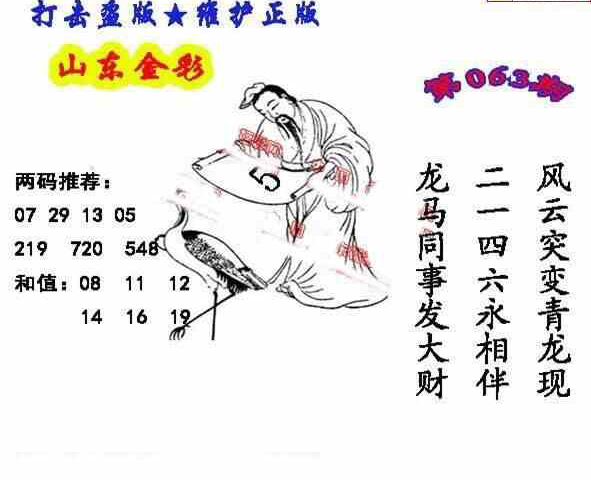 打击盗版★维护正版
山东金彩
第063期
两码推荐：
07 29 13 05
219 720 548
和值：08 11 12
14 16 19
5
风云突变青龙现
二一四六永相伴
龙马同事发大财